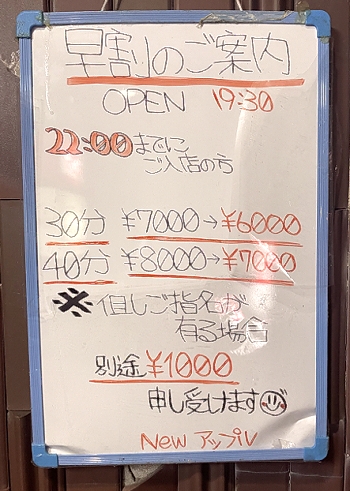 早割のご案内
OPEN 19:30
22:00までに
ご入店の方
30分 ¥7000→¥6000
40分 ¥8000→¥7000
※但しご指名が
有る場合
別途¥1000
申し受けます
New アップル